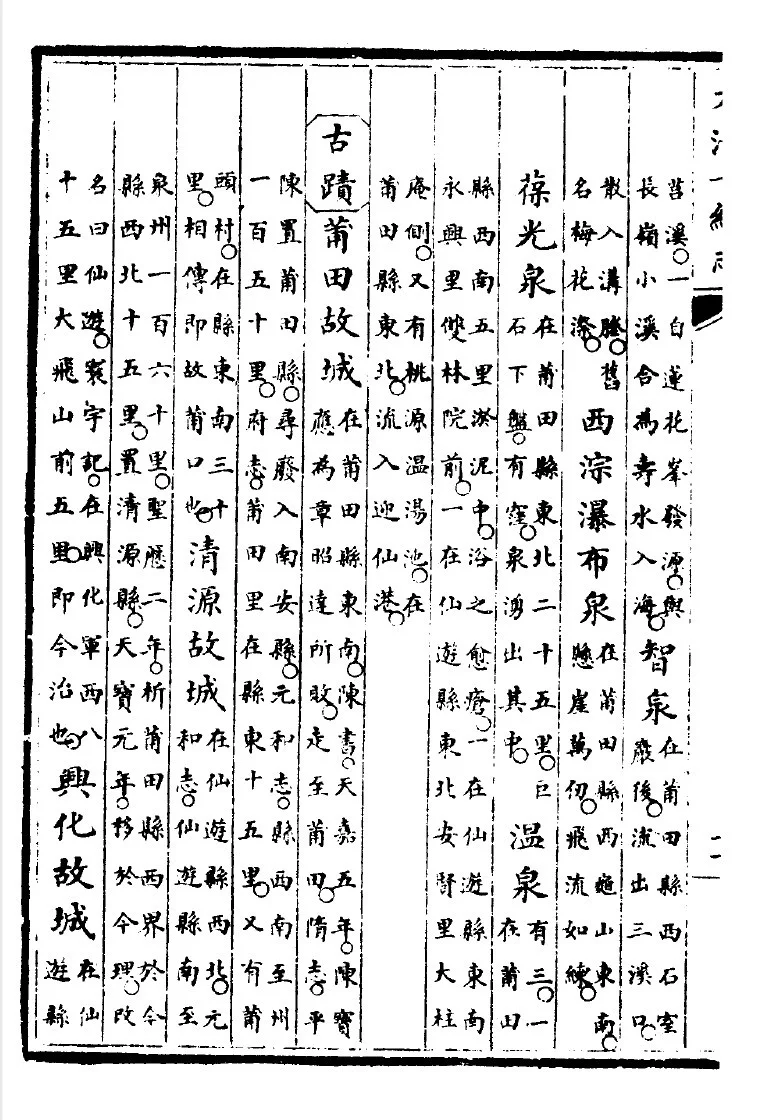 大清一統志
莒溪。一白蓮花峯發源。與
長嶺小溪合為壽水入海。
智泉
在莆田縣西石室
巖後。流出三溪口。
散入溝塍。舊
名梅花漈。
西淙瀑布泉
在莆田縣西龜山東南。
懸崖萬仞。飛流如練。
葆光泉
在莆田縣東北二十五里。巨
石下盤。有竅。泉湧出其中。
温泉
有三。一
在莆田
縣西南五里淤泥中。浴之愈瘡。一在仙遊縣東南
永興里雙林院前。一在仙遊縣東北安賢里大柱
庵側。又有桃源温湯池。在
莆田縣東北。流入迎仙港。
古蹟
莆田故城
在莆田縣東南。陳書。天嘉五年。陳寶
應為章昭達所敗。走至莆田。隋志。平
陳置莆田縣。尋廢入南安縣。元和志。縣西南至州
一百五十里。府志。莆田里在縣東十五里。又有莆
頭村。在縣東南三十
里。相傳即故莆口也。
清源故城
在仙遊縣西北。元
和志。仙遊縣南至
泉州一百六十里。聖曆二年。析莆田縣西界於今
縣西北十五里。置清源縣。天寶元年。移於今理。改
名曰仙遊。寰宇記。在興化軍西八
十五里大飛山前五里。即今治也。
興化故城
在仙
遊縣